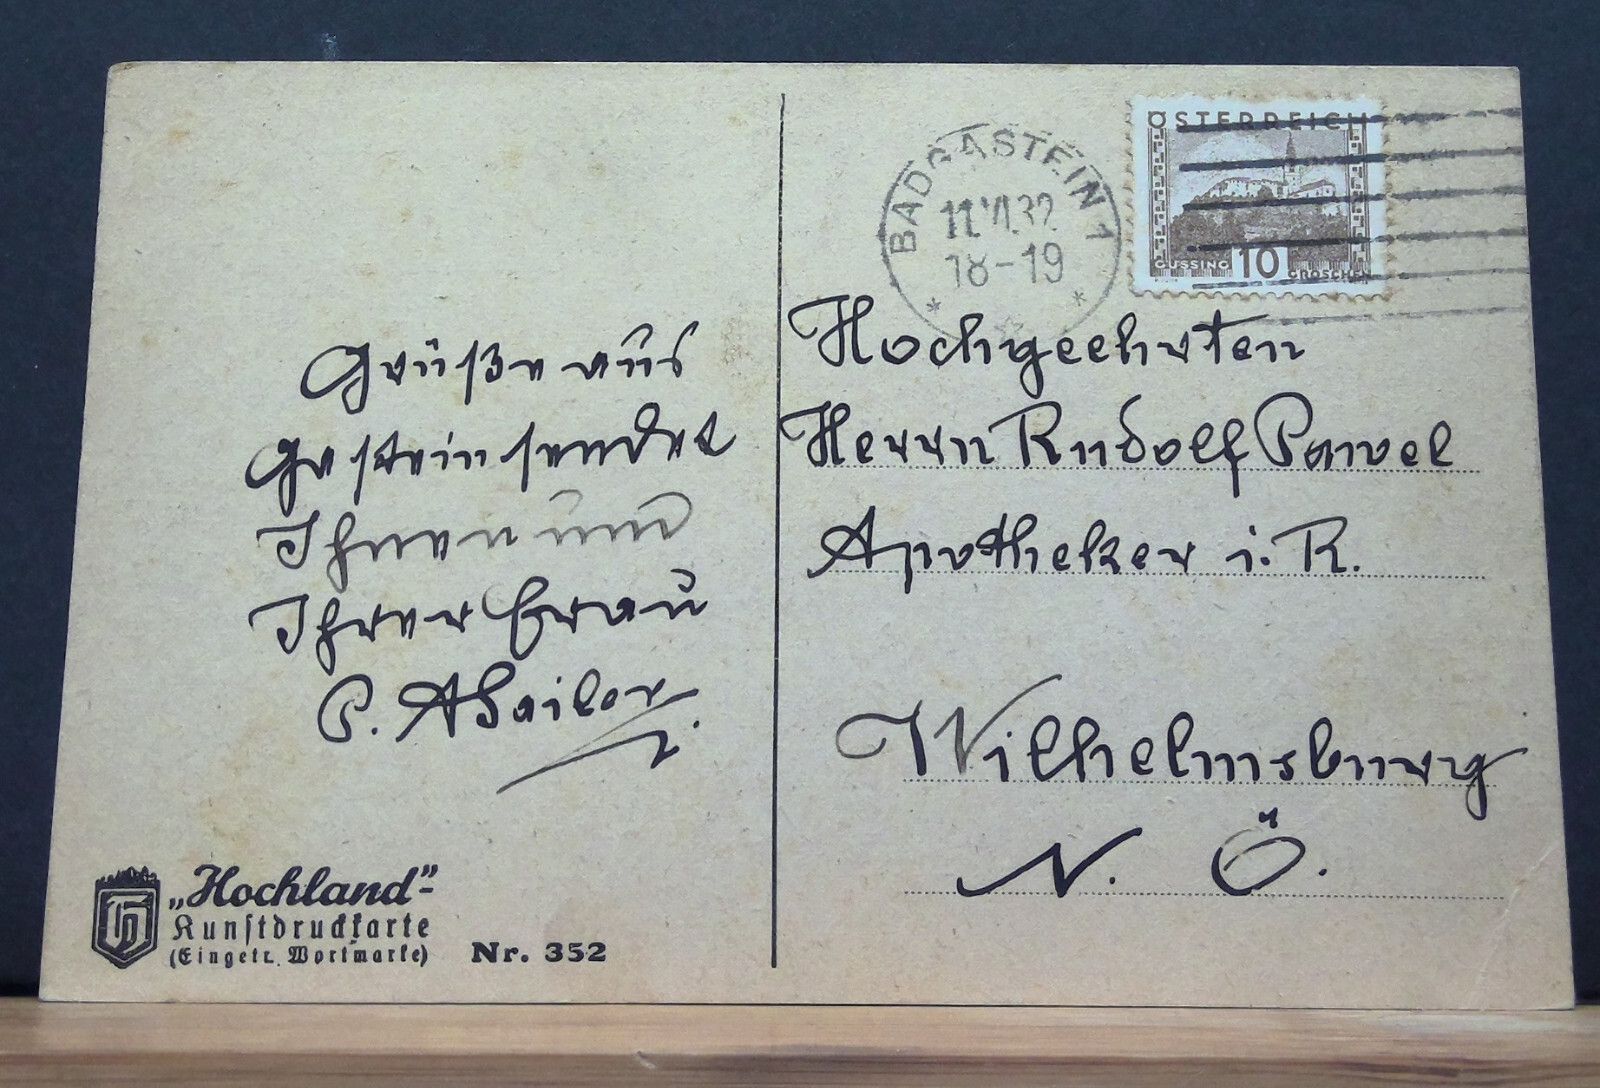 Grüße aus
Gastein sendet
Ihnen und
Ihrer Frau
P.
„Hochland“-
Kunstdruckkarte
(Eingetr. Wortmarke) Nr. 352
BADGASTEIN 1
11.VI.32
18-19
ÖSTERREICH
GÜSSING 10 GROSCHEN
Hochgeehrten
Herrn Rudolf Pawel
Apotheker i. R.
Wilhelmsburg
N. Ö.